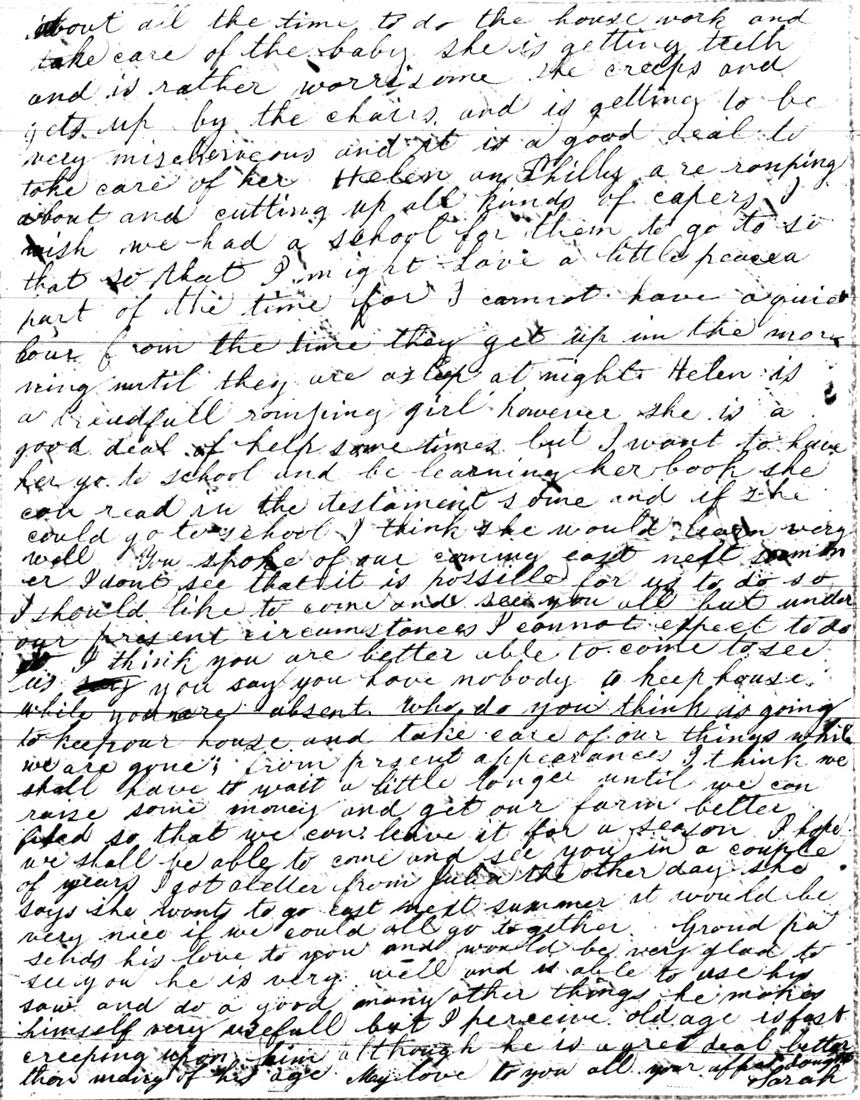 about all the time to do the house work and
take care of the baby she is getting teeth
and is rather worrisome she creeps and
gets up by the chairs and is getting to be
very mischeiveous and it is a good deal to
take care of her Helen an Philly are romping
about and cutting up all kinds of capers I
wish we had a school for them to go to so
that so that I might have a little peacea
part of the time for I cannot have a quiet
hour from the time they get up im the mor
ning until they are asleep at night Helen is
a dreadfull romping girl however she is a
good deal of help some times but I want to have
her go to school and be learning her book she
can read in the testament some and if she
could go to school I think she would learn very
well You spoke of our coming east next summ
er I dont see that it is possille for us to do so
I should like to come and see you all but under
our present circumstances I cannot expect to do
it I think you are better able to come to see
us you say you have nobody to keep house
while you are absent. Who do you think is going
to keep our house and take care of our things while
we are gone; from prsent appearances I think we
shall have to wait a little longer until we can
raise some money and get our farm better
fixed so that we can leave it for a season I hope
we shall be able to come and see you in a couple
of years I got a letter from Julia the other day she
says she wants to go east next summer it would be
very nice if we could all go together Grand pa
sends his love to you and would be very glad to
see you he is very well and is able to use his
saw and do a good many other things he makes
himself very usefull but I perceive old age is fast
creeping upon him although he is a gret deal better
than many of his age My love to you all your affec daught
Sarah